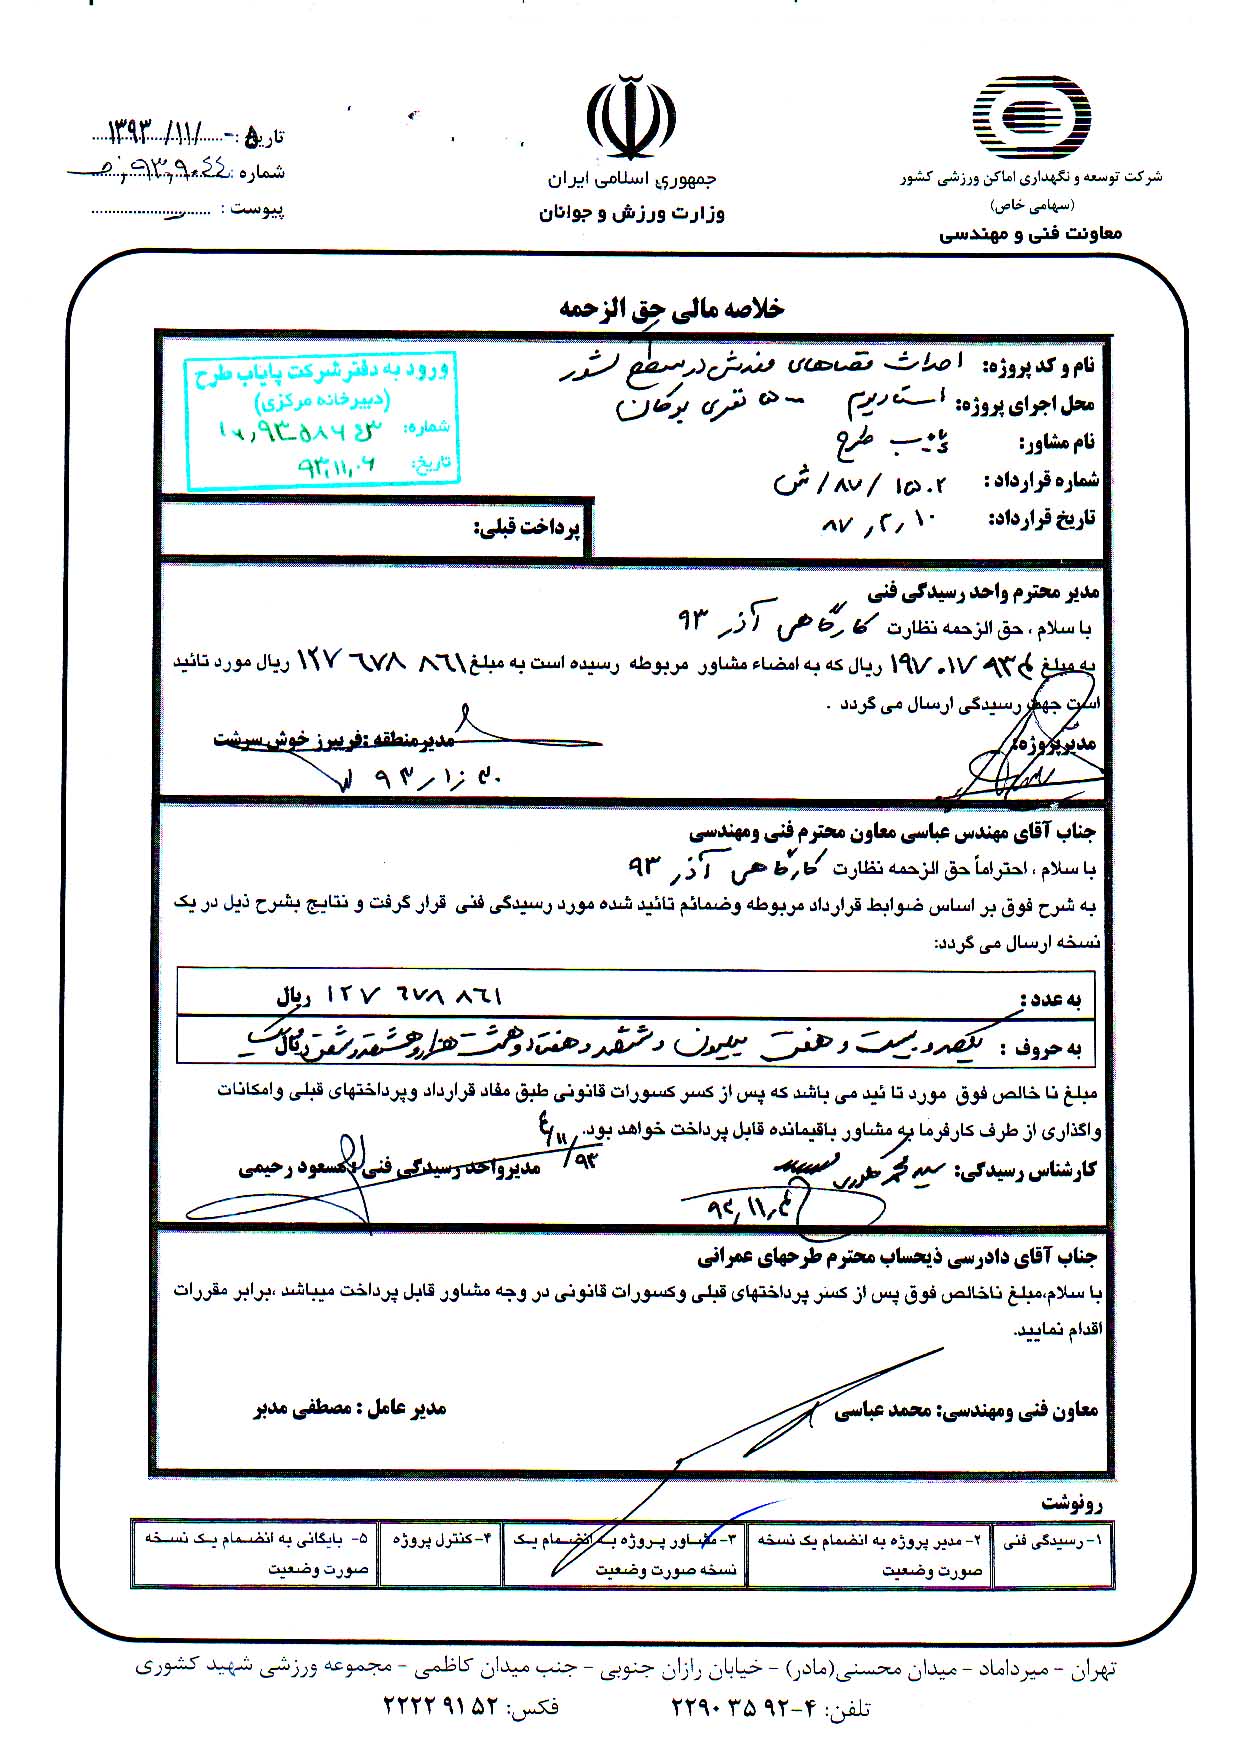 شرکت توسعه و نگهداری اماکن ورزشی کشور
(سهامی خاص)
معاونت فنی و مهندسی
جمهوری اسلامی ایران
وزارت ورزش و جوانان
تاریخ: ۱۳۹۳/۱۱/۰۵
شماره: ۹۳,۹۰۴۴
پیوست:
خلاصه مالی حق الزحمه
نام و کد پروژه: احداث فضاهای ورزشی در سطح کشور
محل اجرای پروژه: استادیوم ۵۰۰۰ نفری بوکان
نام مشاور: پایاب طرح
شماره قرارداد: ۱۵۰۲/۸۷/ش
تاریخ قرارداد: ۸۷,۲,۱۰
ورود به دفتر شرکت پایاب طرح
(دبیرخانه مرکزی)
شماره:
تاریخ: ۹۳,۱۱,۰۶
پرداخت قبلی:
مدیر محترم واحد رسیدگی فنی
با سلام ، حق الزحمه نظارت کارگاهی آذر ۹۳
به مبلغ ۱۹۷۰۱۷۹۳۴ ریال که به امضاء مشاور مربوطه رسیده است به مبلغ ۱۲۷ ۶۷۸ ۸۶۱ ریال مورد تائید
است جهت رسیدگی ارسال می گردد .
مدیرپروژه: مدیرمنطقه :فریبرز خوش سرشت
۹۳,۱۰,۳۰
جناب آقای مهندس عباسی معاون محترم فنی ومهندسی
با سلام ، احتراماً حق الزحمه نظارت کارگاهی آذر ۹۳
به شرح فوق بر اساس ضوابط قرارداد مربوطه وضمائم تائید شده مورد رسیدگی فنی قرار گرفت و نتایج بشرح ذیل در یک
نسخه ارسال می گردد:
به عدد : ۱۲۷ ۶۷۸ ۸۶۱ ریال
به حروف : یکصد و بیست و هفت میلیون و ششصد و هفتاد و هشت هزار و هشتصد و شصت و یک ریال
مبلغ نا خالص فوق مورد تا ئید می باشد که پس از کسر کسورات قانونی طبق مفاد قرارداد وپرداختهای قبلی وامکانات
واگذاری از طرف کارفرما به مشاور باقیمانده قابل پرداخت خواهد بود.
کارشناس رسیدگی: سید محمد مدیرواحد رسیدگی فنی : مسعود رحیمی
۹۳,۱۱,۴ ۹۳/۱۱/۴
جناب آقای دادرسی ذیحساب محترم طرحهای عمرانی
با سلام،مبلغ ناخالص فوق پس از کسر پرداختهای قبلی وکسورات قانونی در وجه مشاور قابل پرداخت میباشد ،برابر مقررات
اقدام نمایید.
معاون فنی ومهندسی: محمد عباسی مدیر عامل : مصطفی مدبر
رونوشت
۱- رسیدگی فنی
۲- مدیر پروژه به انضمام یک نسخه
صورت وضعیت
۳- مشاور پروژه به انضمام یک
نسخه صورت وضعیت
۴- کنترل پروژه
۵- بایگانی به انضمام یک نسخه
صورت وضعیت
تهران - میرداماد - میدان محسنی(مادر) - خیابان رازان جنوبی - جنب میدان کاظمی - مجموعه ورزشی شهید کشوری
تلفن: ۴-۹۲ ۳۵ ۲۲۹۰ فکس: ۵۲ ۹۱ ۲۲۲۲